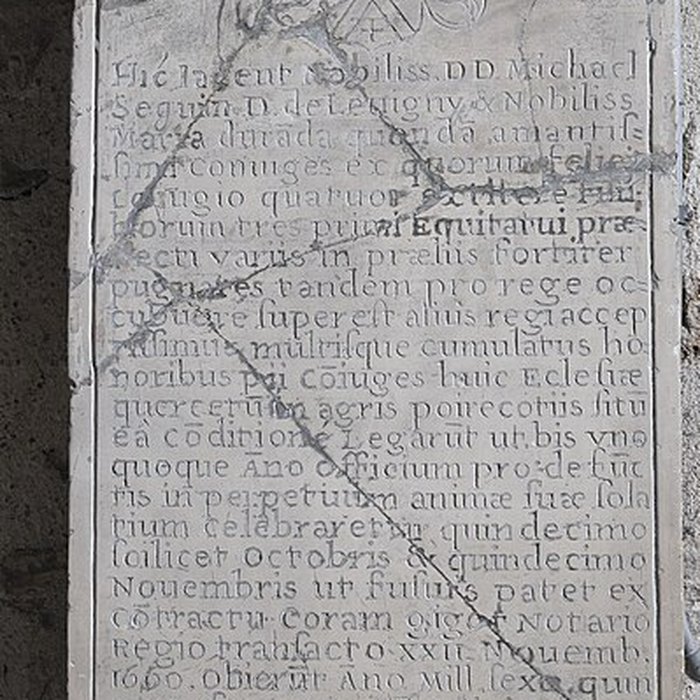 Hic Iacent Nobiliss. D D Michael
Seguin D. de Leuigny & Nobiliss
Maria durada quondā amantiſ=
ſimi coniuges ex quorum felici
coniugio quatuor extitere
primi Equitatui præ=
fecti variis in præliis fortiter
pugnātes tandem pro rege oc=
cubuere ſupereſt alius regi accep
tiſſimus multiſque cumulatus ho
noribus pii cōiuges huic Ecleſiæ
quercetū in agris poirecotiis ſitū
eā cōditione Legarūt ut bis vno
quoque Āno officium pro defūc
tis in perpetuum animæ ſuæ ſola
tium celebraretur quindecimo
ſcilicet Octobris & quindecimo
Nouembris ut fuſius patet ex
cōtractu coram gigot Notario
Regio tranſacto XXII Nouemb.
1660. obierūt Āno Mill ſexc. quin